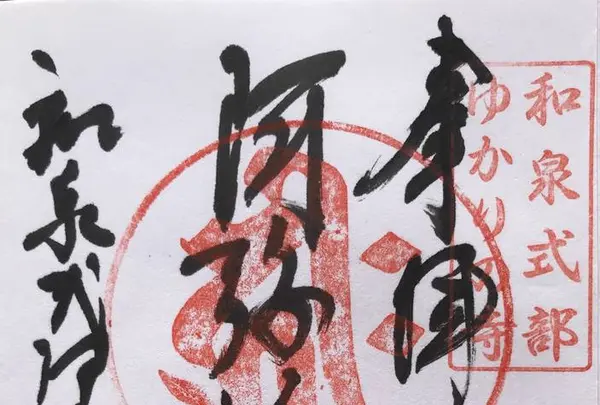 和泉式部
ゆかりの寺
奉
阿弥
和泉式部